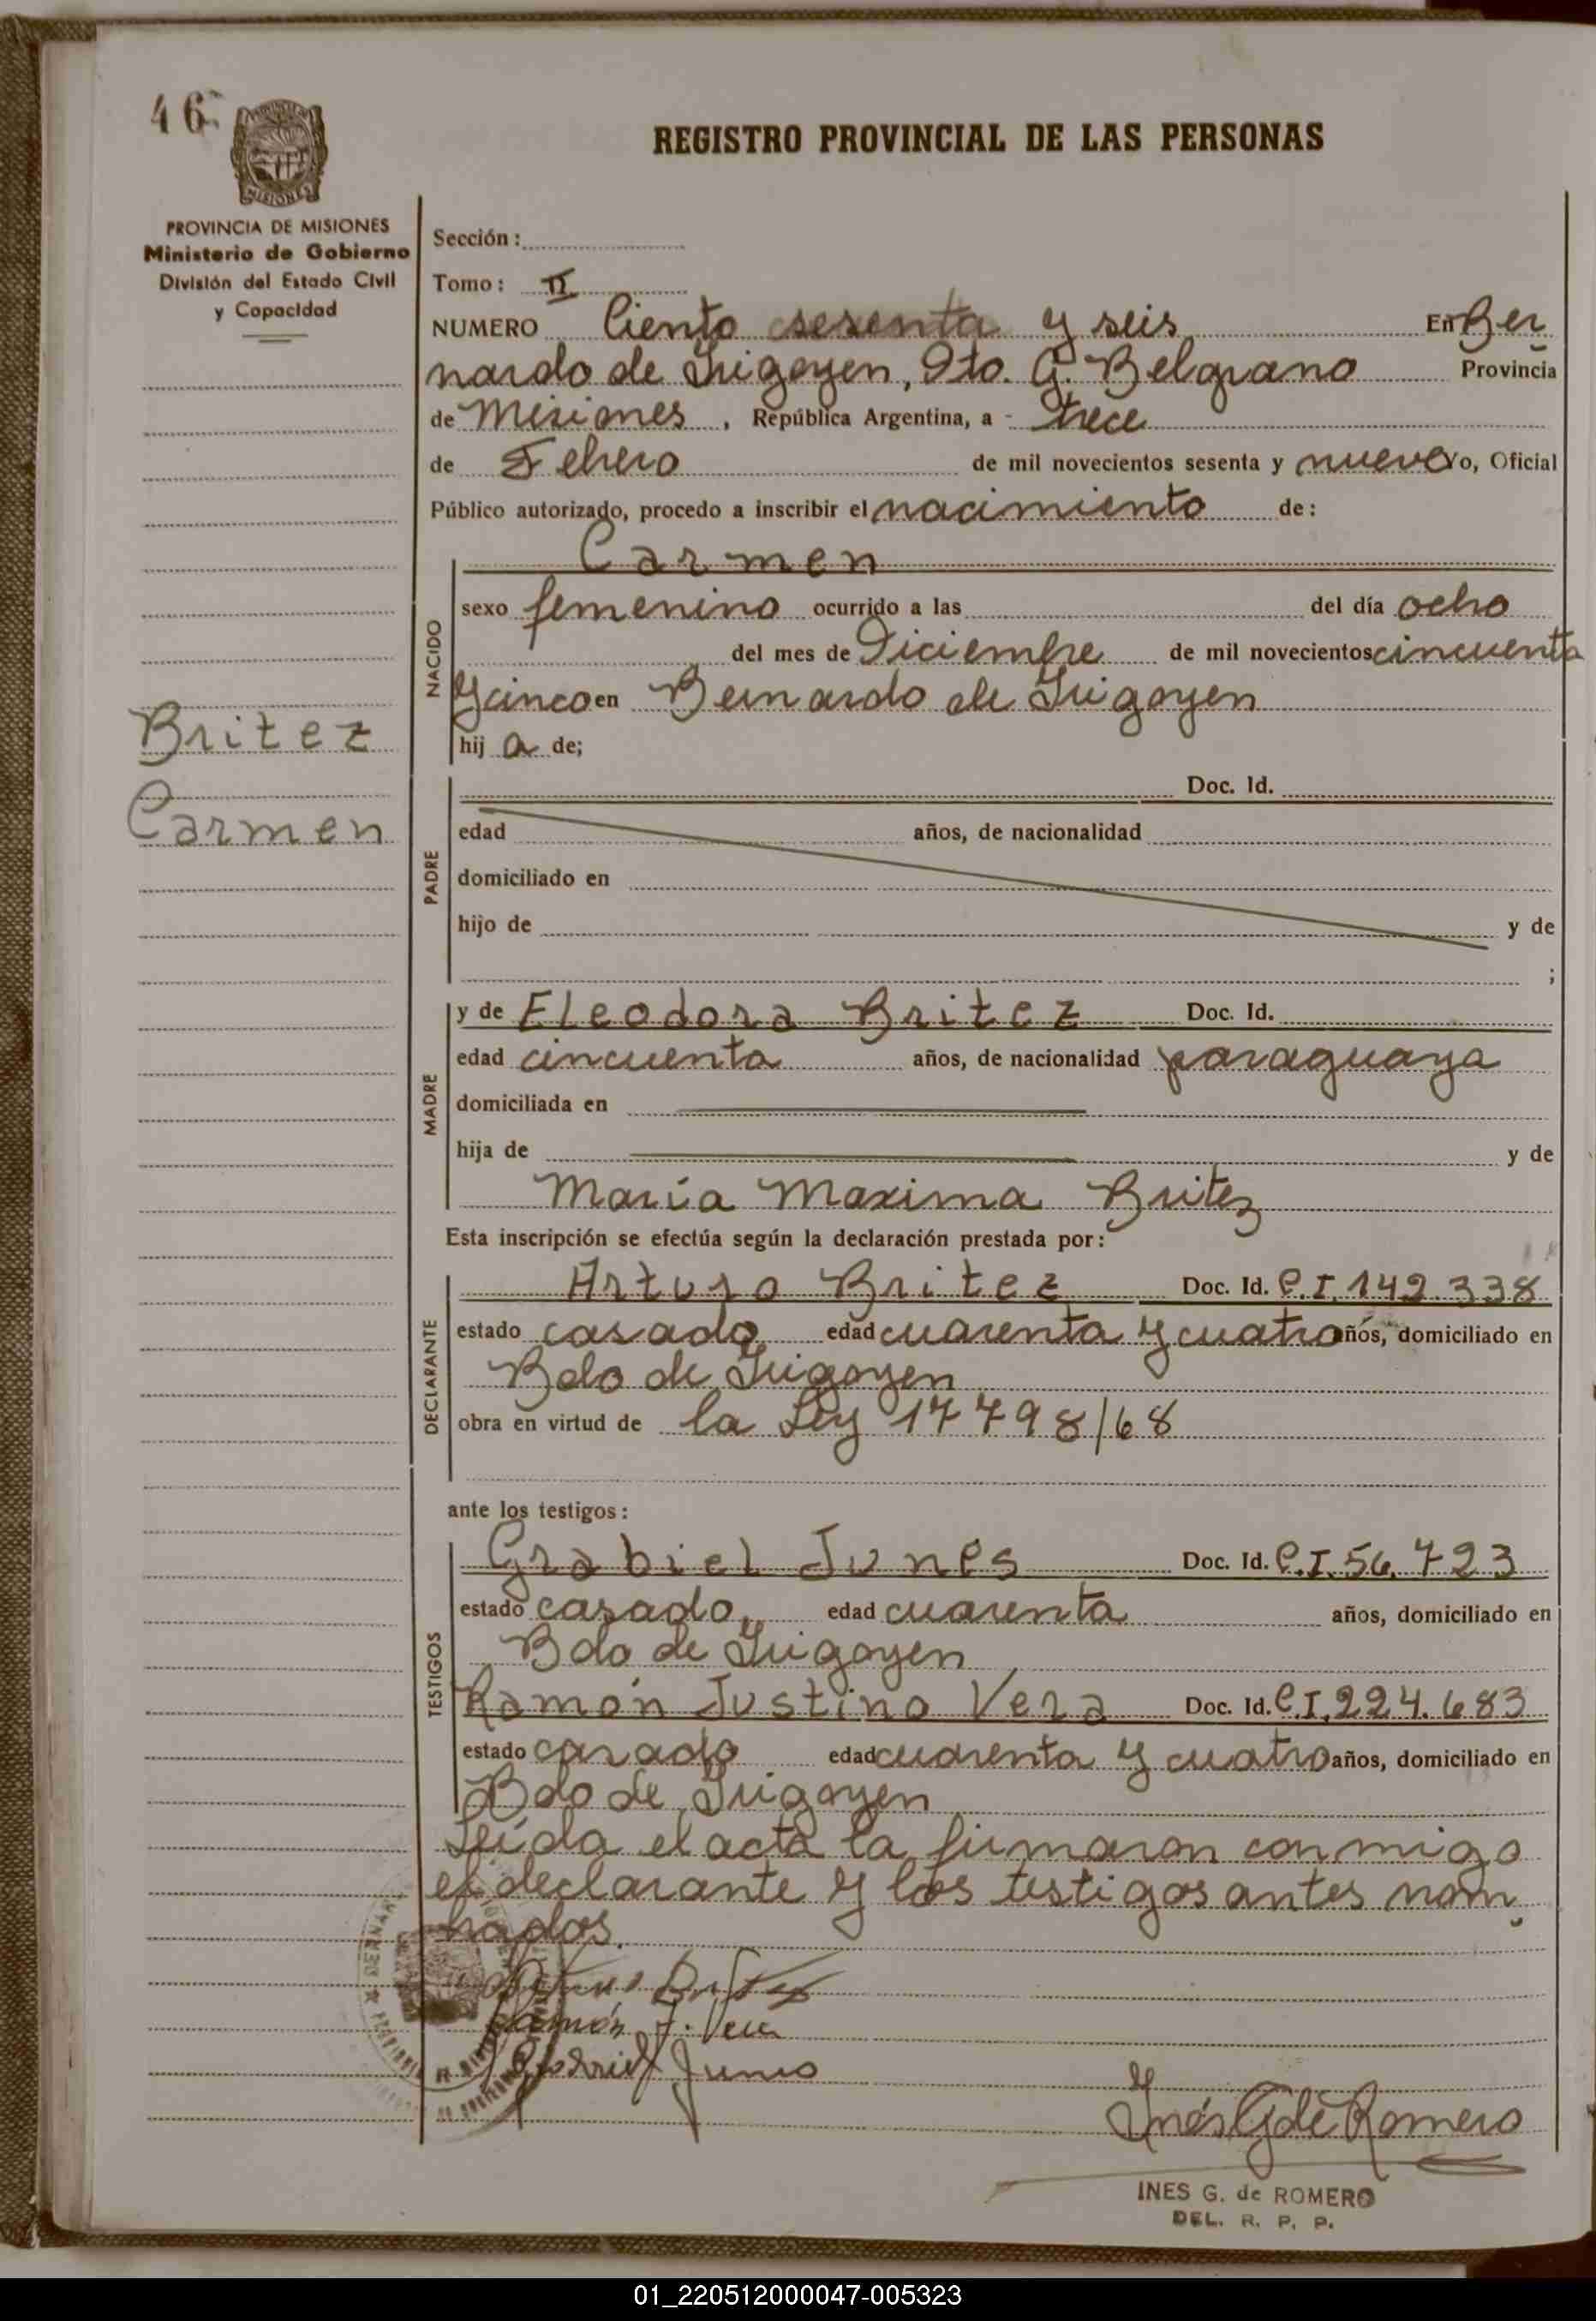 46
MISIONES
REGISTRO PROVINCIAL DE LAS PERSONAS
PROVINCIA DE MISIONES
Ministerio de Gobierno
División del Estado Civil
y Capacidad
Sección:
Tomo: II
NUMERO Ciento sesenta y seis En Ber
nardo de Irigoyen, Dto. G. Belgrano Provincia
de Misiones, República Argentina, a trece
de Febrero de mil novecientos sesenta y nueve Yo, Oficial
Público autorizado, procedo a inscribir el nacimiento de:
Carmen
NACIDO
sexo femenino ocurrido a las del día ocho
del mes de Diciembre de mil novecientos cincuenta
y cinco en Bernardo de Irigoyen
hij a de;
Britez
Carmen
PADRE
Doc. Id.
edad años, de nacionalidad
domiciliado en
hijo de y de
;
MADRE
y de Eleodora Britez Doc. Id.
edad cincuenta años, de nacionalidad paraguaya
domiciliada en
hija de y de
María Maxima Britez
Esta inscripción se efectúa según la declaración prestada por:
DECLARANTE
Arturo Britez Doc. Id. C.I. 142.338
estado casado edad cuarenta y cuatro años, domiciliado en
Bdo de Irigoyen
obra en virtud de la Ley 17798/68
ante los testigos:
TESTIGOS
Grabiel Junes Doc. Id. C.I. 56.723
estado casado, edad cuarenta años, domiciliado en
Bdo de Irigoyen
Ramón Justino Vera Doc. Id. C.I. 224.683
estado casado edad cuarenta y cuatro años, domiciliado en
Bdo de Irigoyen
Leída el acta la firmaron conmigo
el declarante y los testigos antes nom
brados.
Arturo Britez
Ramón J. Vera
Junes
Inés G de Romero
INES G. de ROMERO
DEL. R. P. P.
01_220512000047-005323